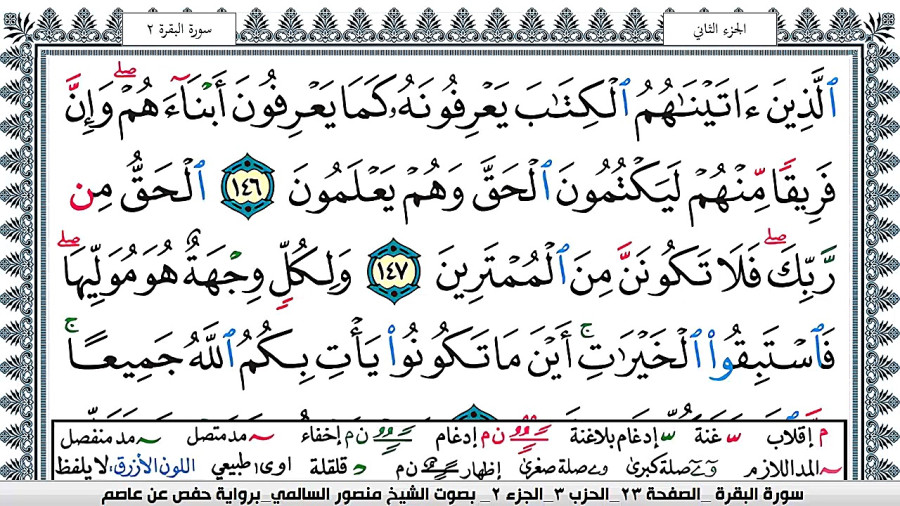 الجزء الثاني
سورة البقرة ٢
ٱلَّذِينَ ءَاتَيْنَٰهُمُ ٱلْكِتَٰبَ يَعْرِفُونَهُۥ كَمَا يَعْرِفُونَ أَبْنَآءَهُمْ ۖ وَإِنَّ
فَرِيقًا مِّنْهُمْ لَيَكْتُمُونَ ٱلْحَقَّ وَهُمْ يَعْلَمُونَ ١٤٦ ٱلْحَقُّ مِن
رَّبِّكَ ۖ فَلَا تَكُونَنَّ مِنَ ٱلْمُمْتَرِينَ ١٤٧ وَلِكُلٍّ وِجْهَةٌ هُوَ مُوَلِّيهَا ۖ
فَٱسْتَبِقُوا۟ ٱلْخَيْرَٰتِ ۚ أَيْنَ مَا تَكُونُوا۟ يَأْتِ بِكُمُ ٱللَّهُ جَمِيعًا ۚ
م إقلاب غنة إدغام بلاغنة ن م إدغام ن م إخفاء مد متصل مد منفصل
المد اللازم صلة كبرى صلة صغرى إظهار ن م قلقلة اوى١ طبيعي اللون الأزرق: لا يلفظ
سورة البقرة _الصفحة ٢٣_الحزب ٣_الجزء ٢_ بصوت الشيخ منصور السالمي_برواية حفص عن عاصم